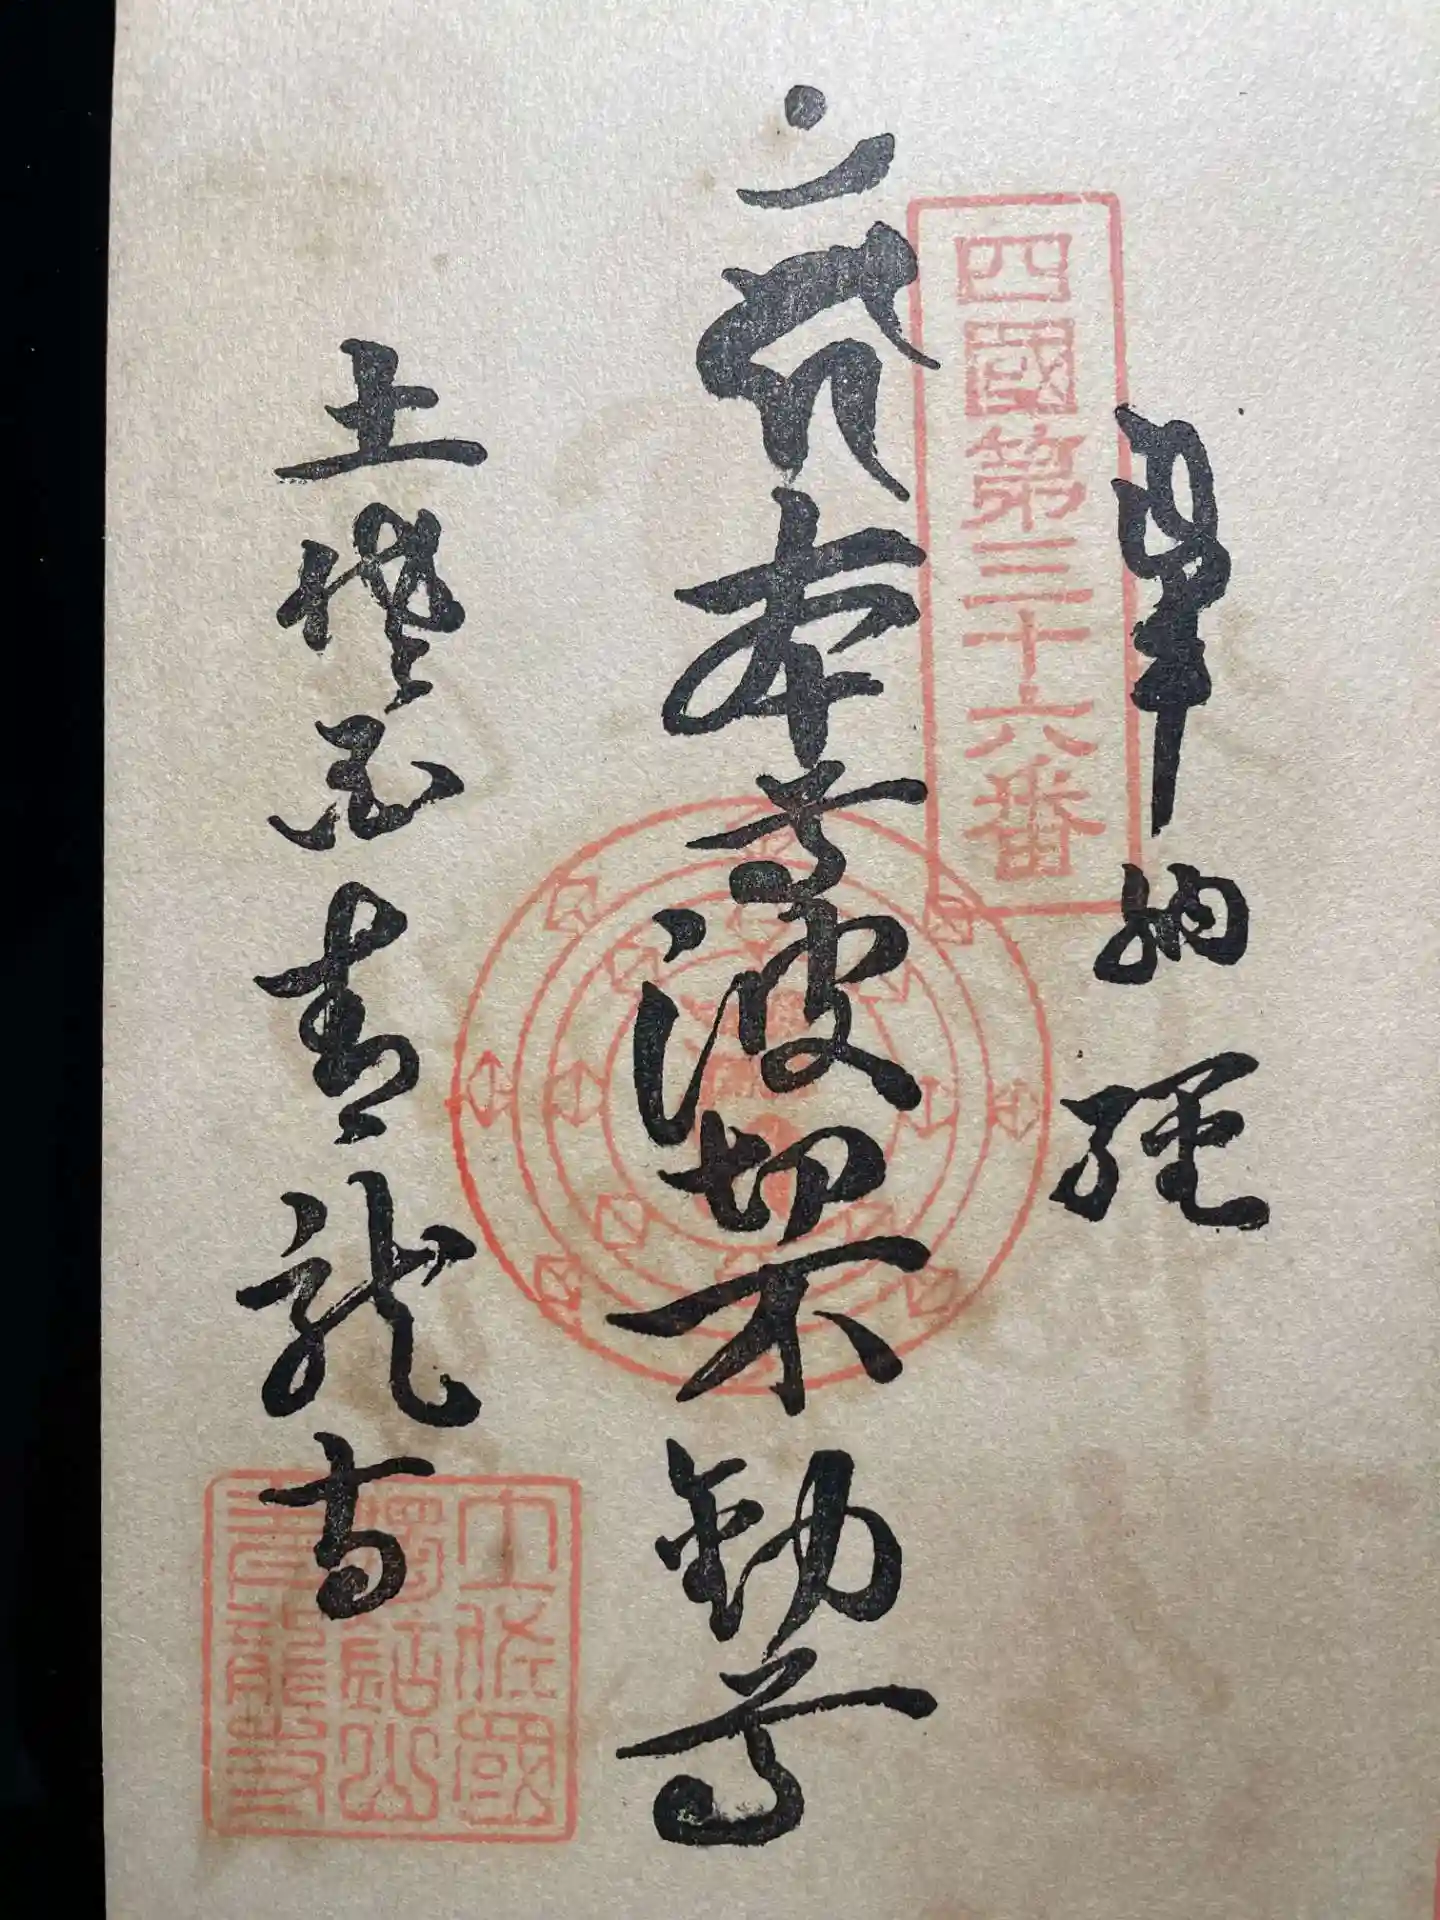 奉納経
四國第三十六番
本尊波切不動尊
土 青龍寺
土佐國
獨鈷山
青龍寺